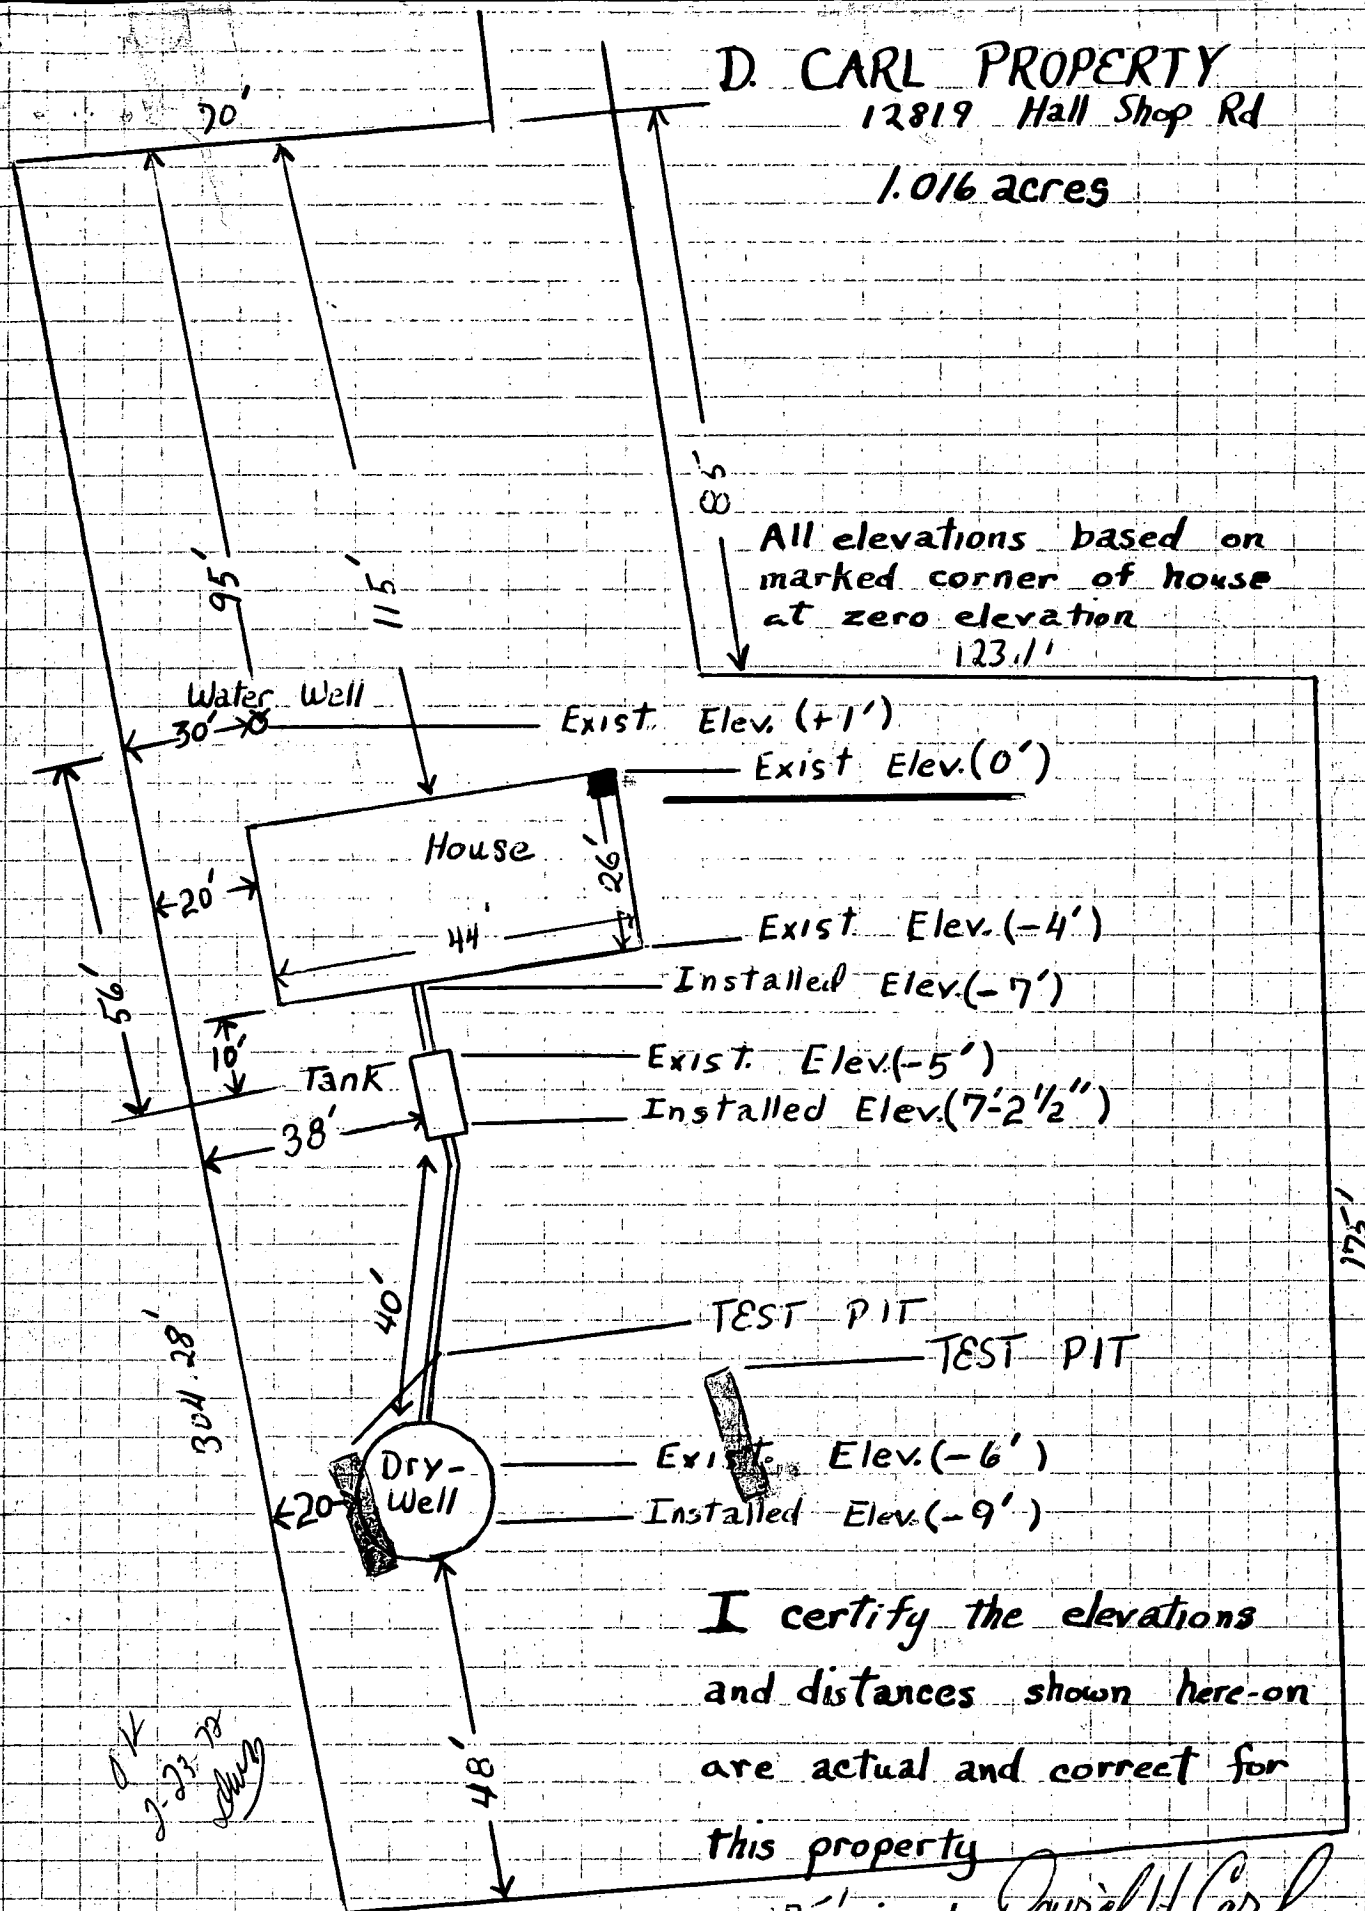 D. CARL PROPERTY
12819 Hall Shop Rd
1.016 acres
70'
85'
95'
115'
All elevations based on
marked corner of house
at zero elevation
123.1'
Water Well
30'
Exist. Elev. (+1')
Exist Elev. (0')
House
26'
20'
44'
Exist. Elev. (-4')
Installed Elev. (-7')
56'
10'
Tank
Exist. Elev. (-5')
Installed Elev. (7'-2 1/2")
38'
175'
40'
TEST PIT
TEST PIT
304.28'
Dry-
Well
20
Exist. Elev. (-6')
Installed Elev. (-9')
I certify the elevations
and distances shown here-on
are actual and correct for
this property
48'
OK
2-23-72
Daniel H Carl